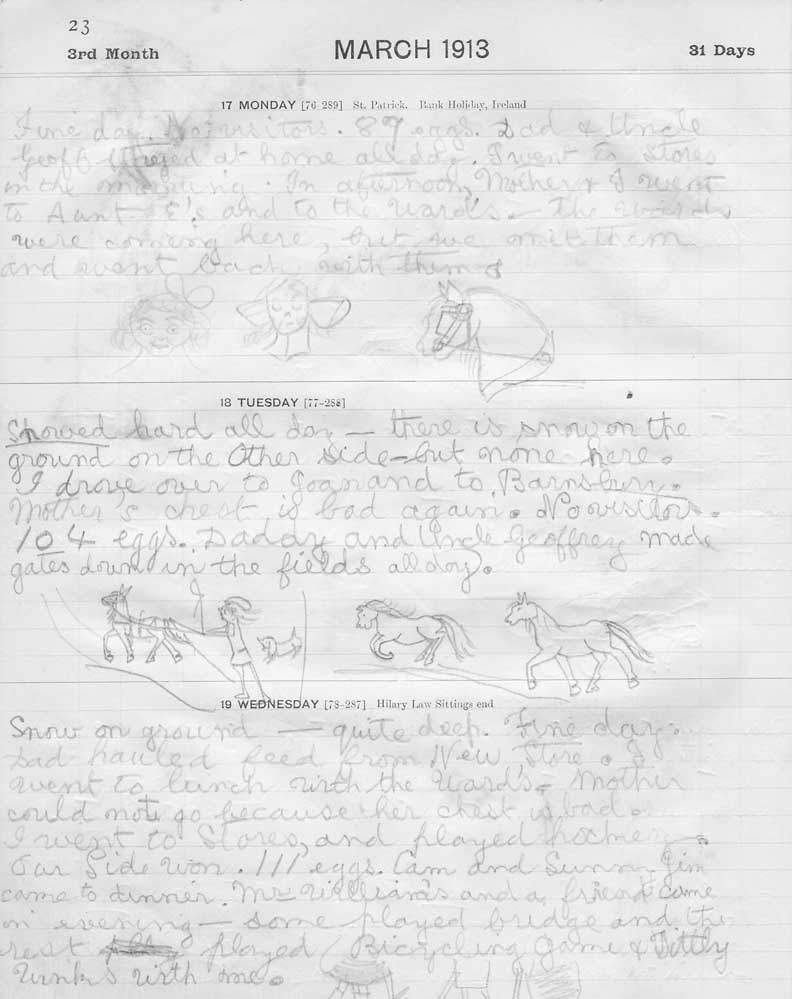 23
3rd Month MARCH 1913 31 Days
17 MONDAY [76-289] St. Patrick. Bank Holiday, Ireland
Fine day. No visitors. 87 eggs. Dad & Uncle
Geoff stayed at home all day. I went to Stores
in the morning. In afternoon, Mother & I went
to Aunt E's and to the Ward's. The Wards
were coming here, but we met them
and went back with them
18 TUESDAY [77-288]
Snowed hard all day — there is snow on the
ground on the Other side — but none here.
I drove over to Joan and to Barnsbury.
Mother's chest is bad again. No visitors.
104 eggs. Daddy and Uncle Geoffrey made
gates down in the fields all day.
19 WEDNESDAY [78-287] Hilary Law Sittings end
Snow on ground — quite deep. Fine day.
Dad hauled feed from New Store. I
went to lunch with the Ward's — Mother
could not go because her chest is bad.
I went to Stores, and played hockey —
Our Side Won. 111 eggs. Cam and Sunny Jim
came to dinner. Mr Williams and a friend came
in evening — some played bridge and the
rest played Bicycling Game & Tittly
Winks with me.